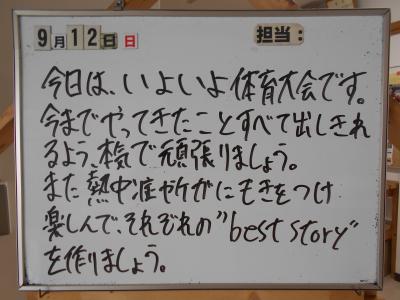 9月12日 日 担当：
今日は、いよいよ体育大会です。
今までやってきたことすべて出しきれ
るよう、本気で頑張りましょう。
また熱中症やケガにも気をつけ
楽しんで、それぞれの"best story"
を作りましょう。